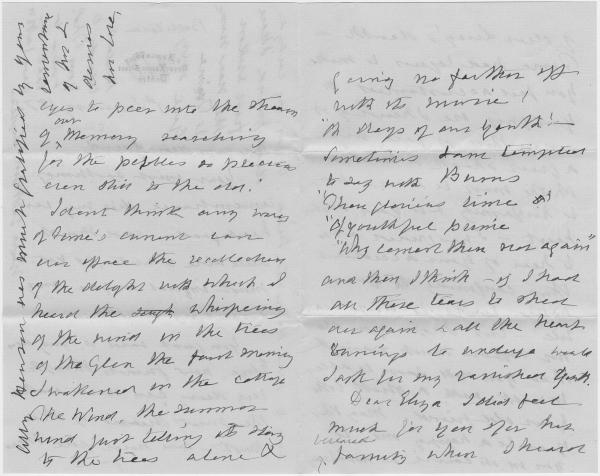 eyes to peer into the stream
of our Memory searching
for the pebbles so precious
even still to the old.
I dont think any waves
of time's current can
ever efface the recollection
of the delight with which I
heard the sough whispering
of the wind in the trees
of the Glen the first morning
I wakened in the cottage
The Wind, the summer
wind just telling its story
to the trees alone &
going no farther off
with its music!
"Oh days of our Youth"!—
Sometimes I am tempted
to say with Burns
"Thou glorious time
"Of youthful prime
"Why comest thou not again"
and then I think – if I had
all those tears to shed
over again & all the heart
burnings to undergo would
I ask for my vanished Youth.
Dear Eliza I did feel
much for you & for his
family when I heard
Ally Henson was much gratified by your
remembrance
of her &
desires
her love,